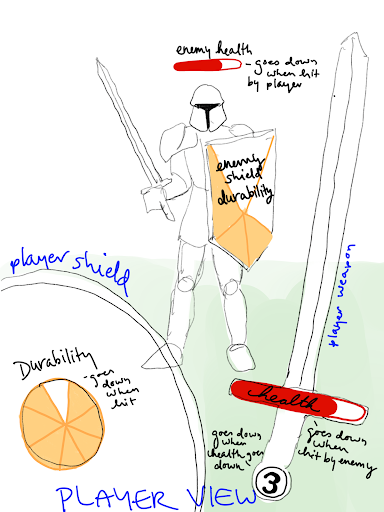 enemy health
- goes down
when hit
by player
enemy
shield
durability
player shield
player weapon
Durability
- goes
down
when
hit
health
goes
down
when
health goes
down
goes down
when
hit by enemy
3
PLAYER VIEW